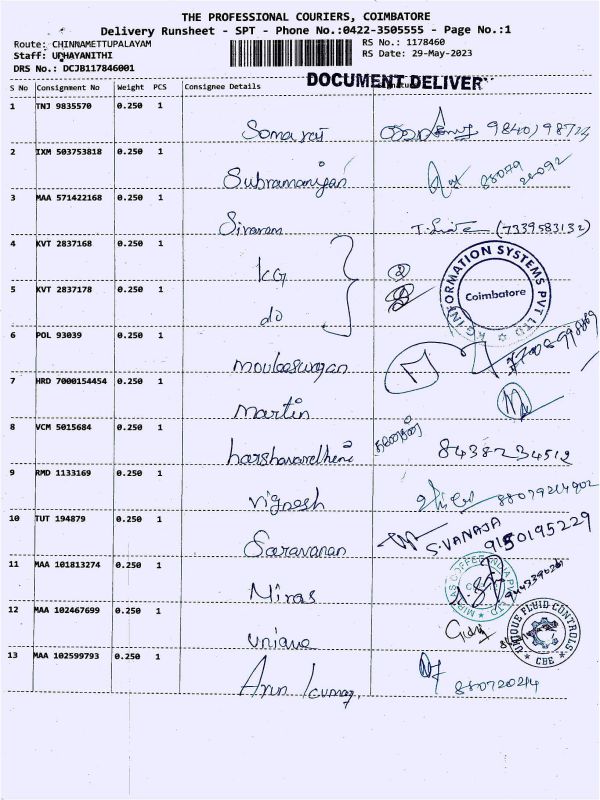 THE PROFESSIONAL COURIERS, COIMBATORE
Delivery Runsheet - SPT - Phone No.:0422-3505555 - Page No.:1
Route: CHINNAMETTUPALAYAM
RS No.: 1178460
Staff: UDHAYANITHI
RS Date: 29-May-2023
DRS No.: DCJB117846001
DOCUMENT DELIVER
S No Consignment No Weight PCS Consignee Details
1 TNJ 9835570 0.250 1
Somaraj
2 IXM 503753818 0.250 1
Subramaniyan 88079
3 MAA 571422168 0.250 1
Sivaram (7339583132)
4 KVT 2837168 0.250 1
KG
KG INFORMATION SYSTEMS PVT LTD
Coimbatore
5 KVT 2837178 0.250 1
do
6 POL 93039 0.250 1
mouleeswaran
7 HRD 7000154454 0.250 1
Martin
8 VCM 5015684 0.250 1
harshavardhini 8438234512
9 RMD 1133169 0.250 1
Vignesh 88079214902
10 TUT 194879 0.250 1
Saravanan S.VANAJA 9150195229
11 MAA 101813274 0.250 1
Miras
12 MAA 102467699 0.250 1
unique
UNIQUE FLUID CONTROLS
CBE
13 MAA 102599793 0.250 1
Arun kumar